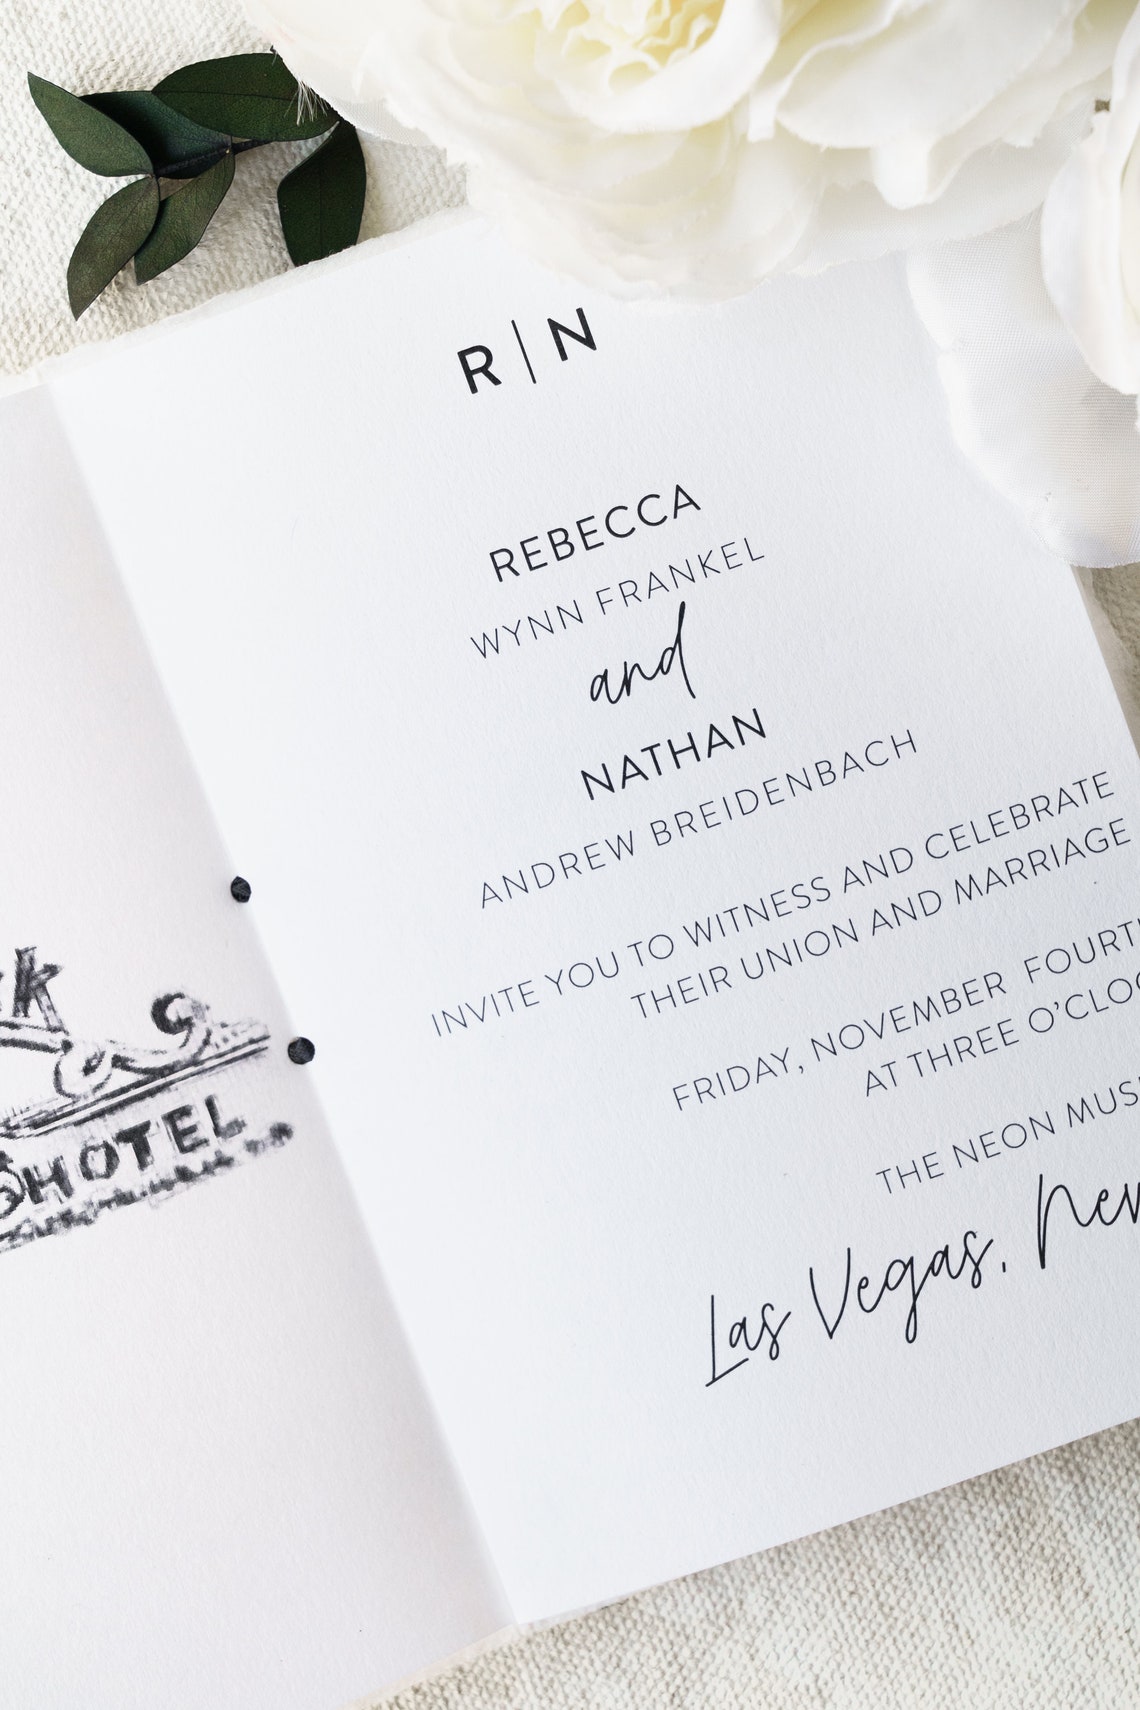 R | N
REBECCA
WYNN FRANKEL
and
NATHAN
ANDREW BREIDENBACH
INVITE YOU TO WITNESS AND CELEBRATE
THEIR UNION AND MARRIAGE
FRIDAY, NOVEMBER FOURT
AT THREE O'CLO
THE NEON MUS
Las Vegas, Nev
HOTEL